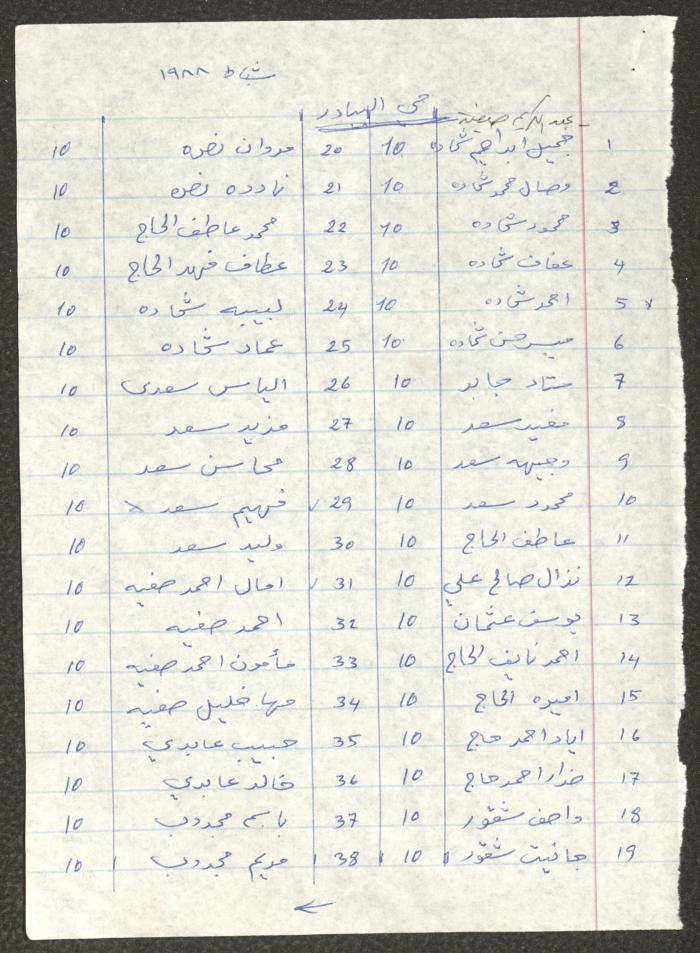 شباط ١٩٨٨
حي البيادر
عبد الكريم صفيه
1 جميل ابراهيم شحاده 10 20 مروان نصره 10
2 وصال محمد شحاده 10 21 نادره نصره 10
3 محمود شحاده 10 22 محمد عاطف الحاج 10
4 عفاف شحاده 10 23 عطاف فهد الحاج 10
x 5 احمد شحاده 10 24 لبيبه شحاده 10
6 ميسر حسن شحاده 10 25 عماد شحاده 10
7 سناد جابر 10 26 الياس سعدى 10
8 مفيد سعد 10 27 مزيد سعد 10
9 وجيهه سعد 10 28 محاسن سعد 10
10 محمود سعد 10 ✓ 29 فهيم سعد x 10
11 عاطف الحاج 10 30 وليد سعد 10
12 نزال صالح علي 10 ✓ 31 امال احمد صفيه 10
13 يوسف عثمان 10 32 احمد صفيه 10
14 احمد نايف الحاج 10 33 مأمون احمد صفيه 10
15 اميره الحاج 10 34 مها خليل صفيه 10
16 اياد احمد حاج 10 35 حبيب عابدي 10
17 ضرار احمد حاج 10 36 خالد عابدي 10
18 واصف شقور 10 37 باسم مجدوب 10
19 جانيت شقور 10 38 مريم مجدوب 10
←